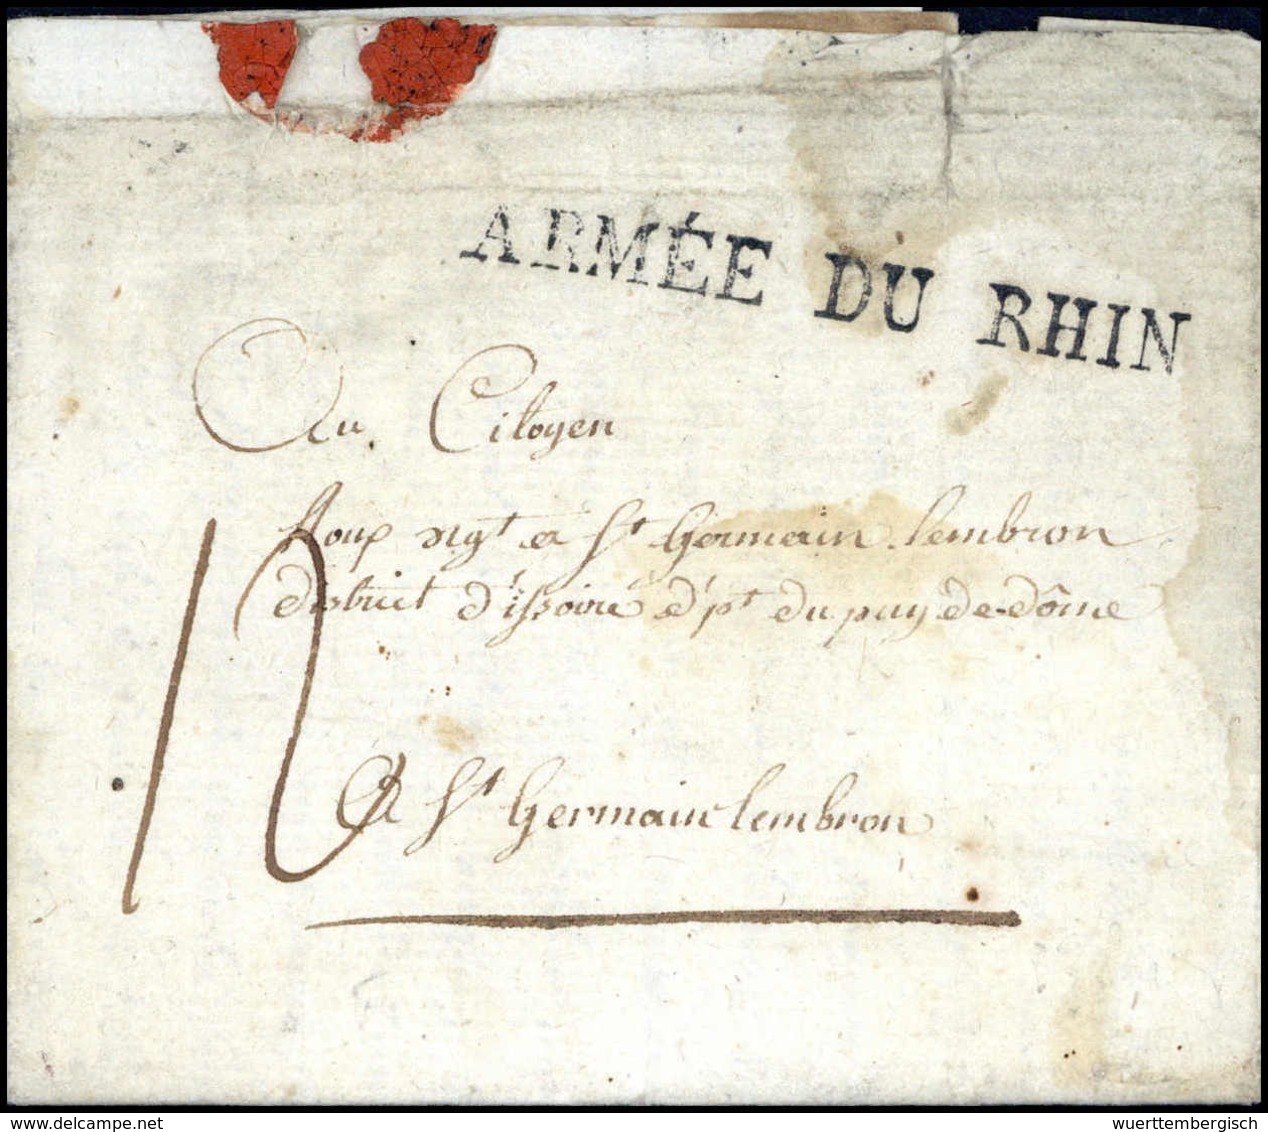 ARMÉE DU RHIN
Au Citoyen
Roux ngt a St Germain lembron
district d'issoire d'pt du puy de dôme
12
A St Germain lembron
wuerttembergisch